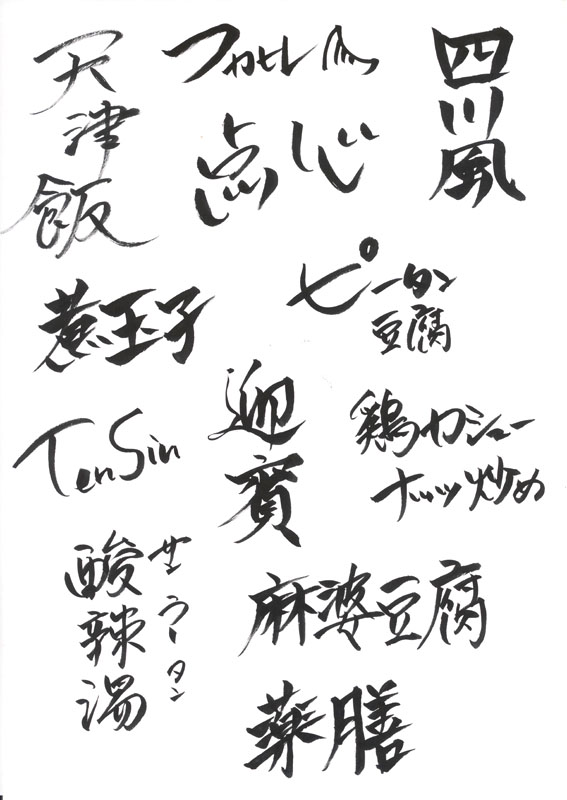 天津飯
フカヒレの
点じ
四川風
煮玉子
ピータン
豆腐
TenSin
迎賓
鶏カシュー
ナッツ炒め
酸辣湯
サンラータン
麻婆豆腐
薬膳